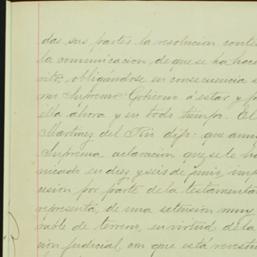 das sus partes la resolucion conte
la comunicacion, de que se ha hecho
rito, obligándose en consecuencia a
mi Supremo Gobierno á estar y p
ella ahora y en todo tiempo. El
Martinez del Rio dijo: que aun
Suprema aclaracion que se le h
nicado en diez y seis de junio imp
cusion por parte de la testamentar
representa, de una estension muy
rable de terreno, en virtud de la
cion judicial, con que está revesti